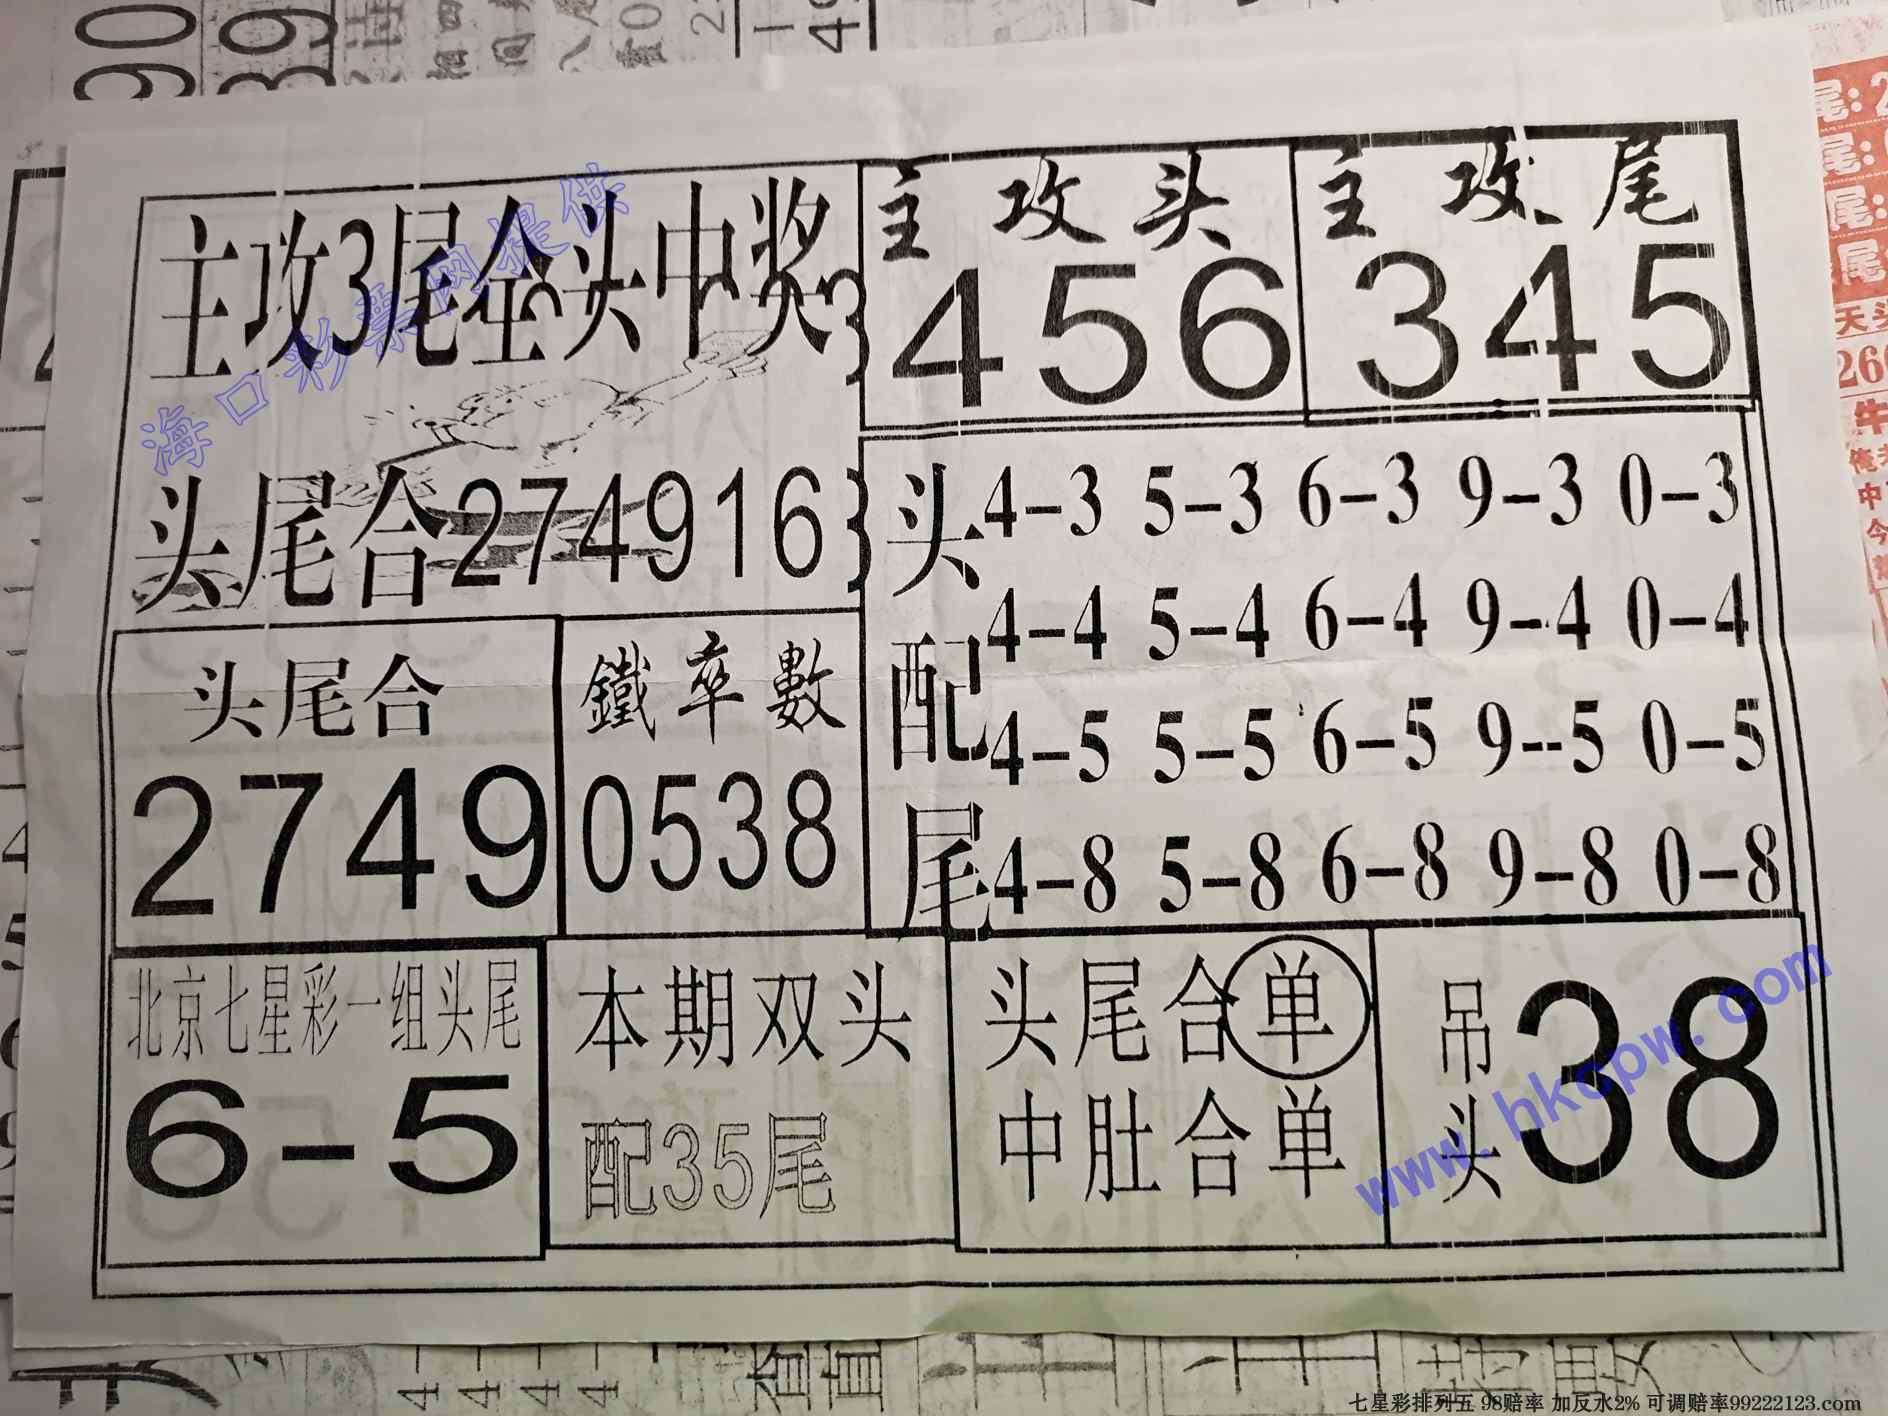 主攻3尾全头中奖
主攻头
456
主攻尾
345
头尾合274916
头配尾
4-3 5-3 6-3 9-3 0-3
4-4 5-4 6-4 9-4 0-4
4-5 5-5 6-5 9--5 0-5
4-8 5-8 6-8 9-8 0-8
头尾合
2749
鐵率數
0538
北京七星彩一组头尾
6-5
本期双头
配35尾
头尾合单
中肚合单
吊头
38
海口彩票网提供
www.hkcpw.com
七星彩排列五 98赔率 加反水2% 可调赔率99222123.com